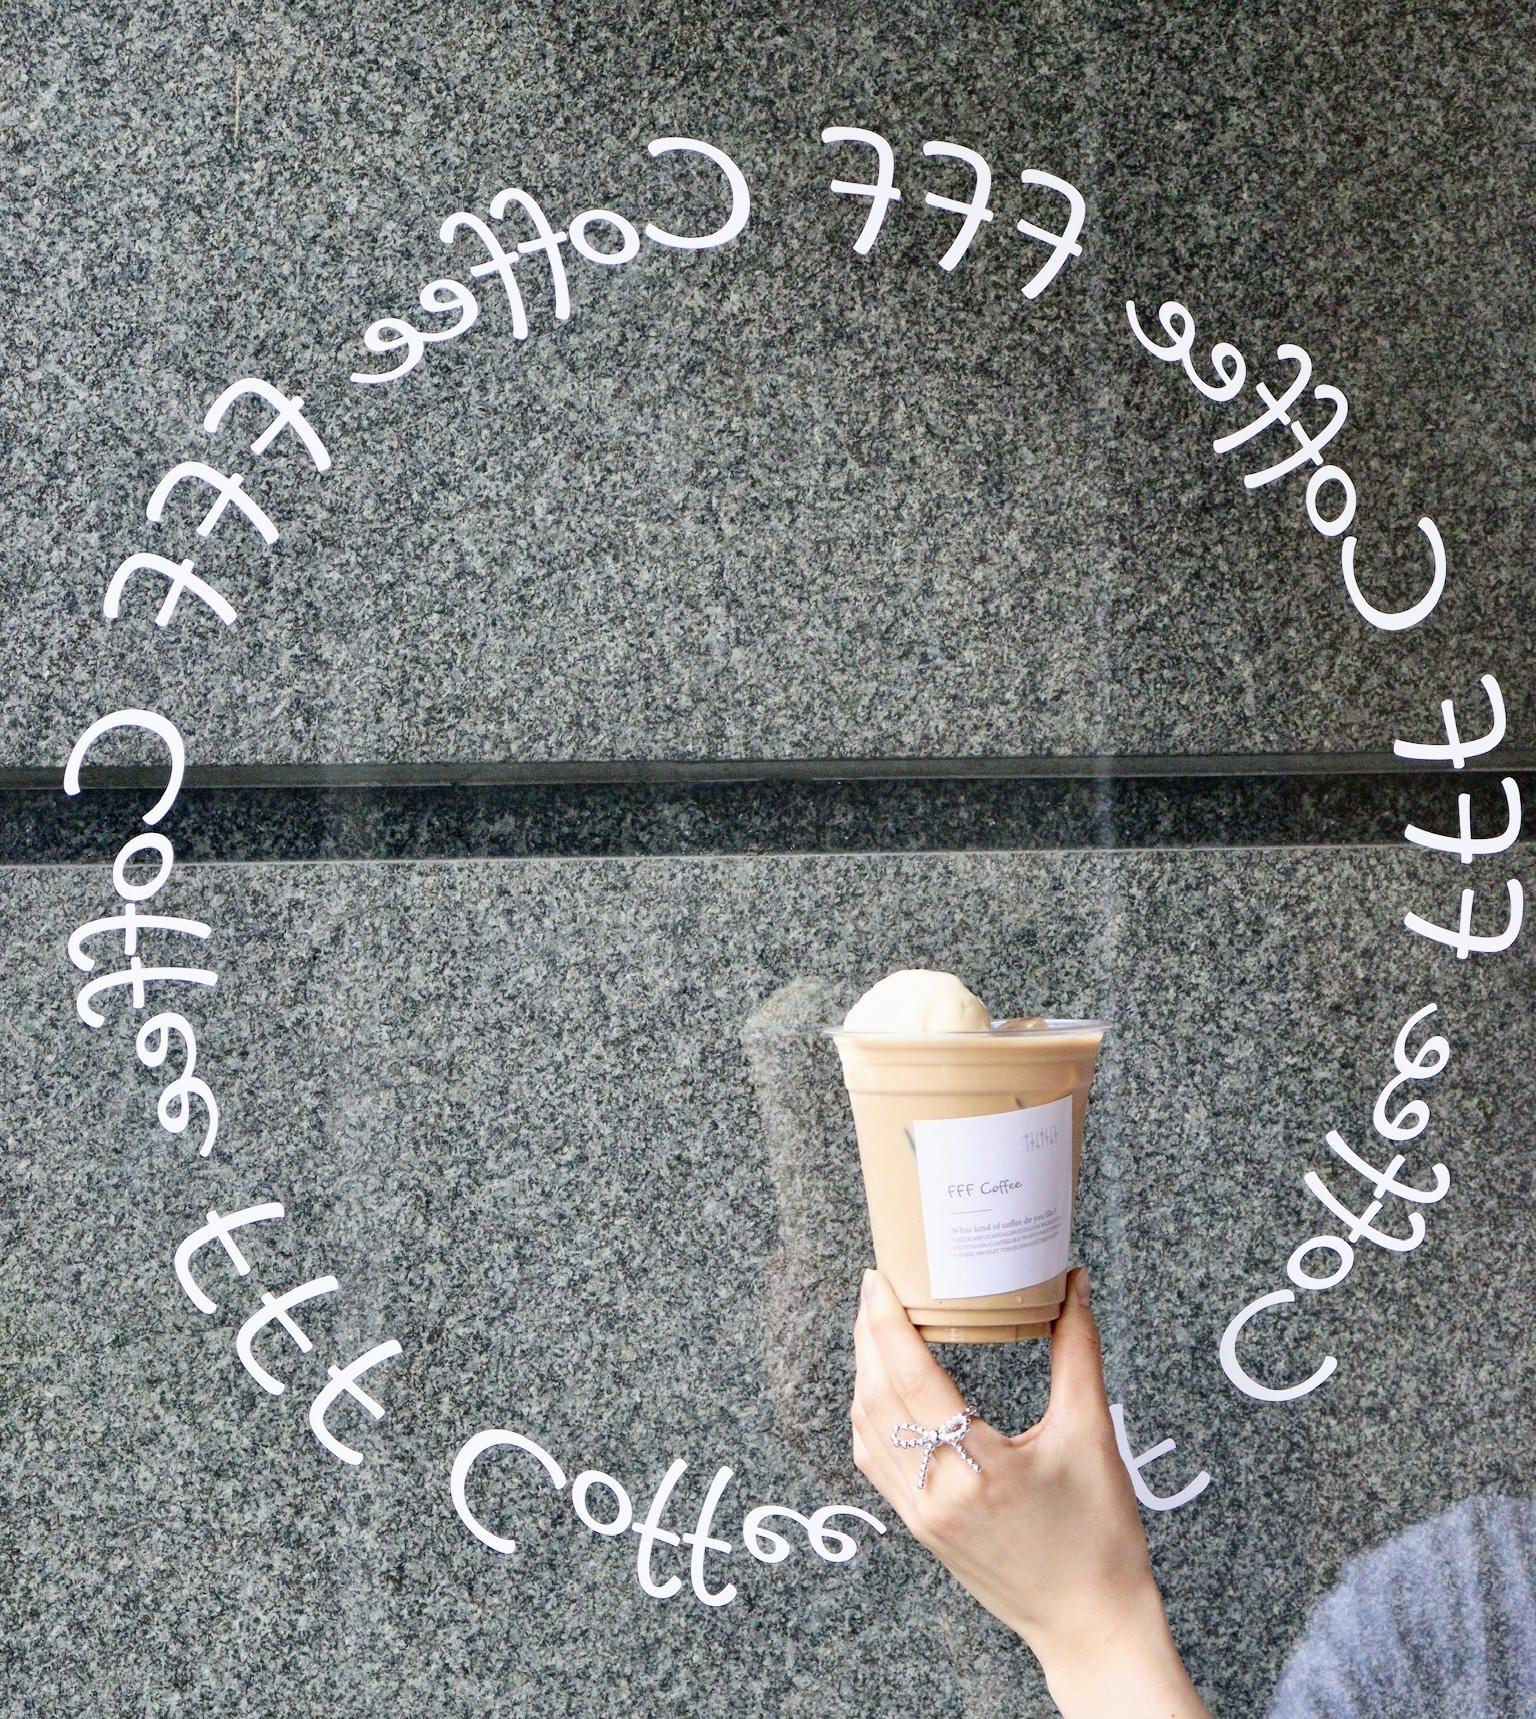 FFF Coffee
FFF Coffee
FFF Coffee
FFF Coffee
F Coffee
FFF Coffee
What kind of coffee do you like?